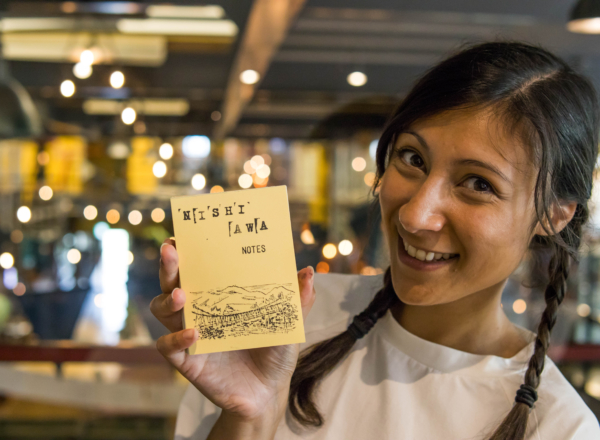 'N[I'S'H'I'
[AWA
NOTES